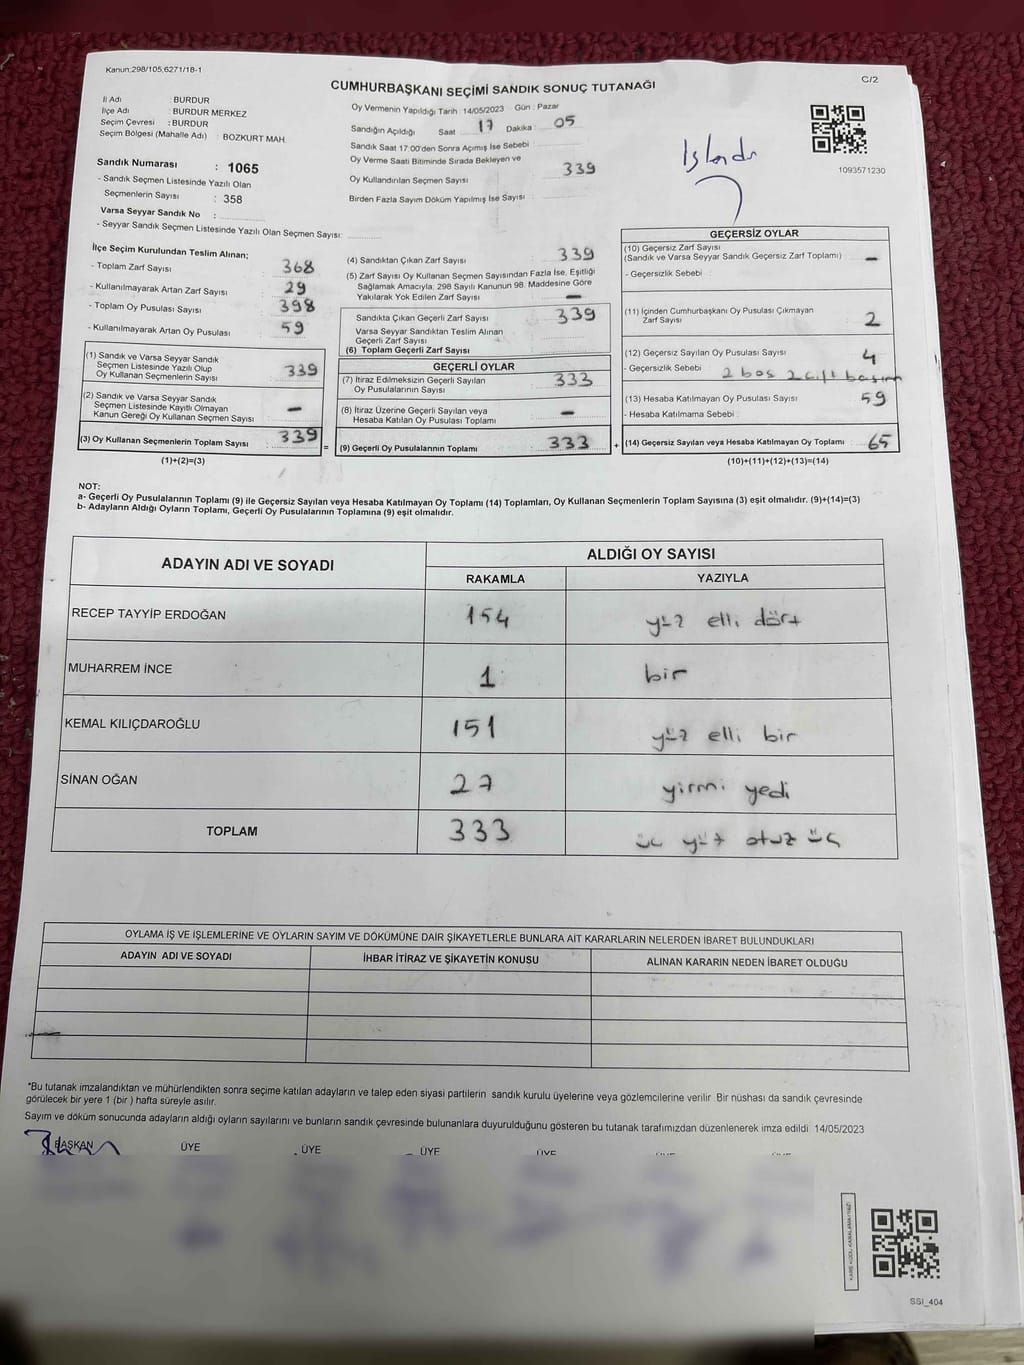 Kanun:298/105,6271/18-1
C/2
CUMHURBAŞKANI SEÇİMİ SANDIK SONUÇ TUTANAĞI
İl Adı : BURDUR
İlçe Adı : BURDUR MERKEZ
Seçim Çevresi : BURDUR
Seçim Bölgesi (Mahalle Adı) : BOZKURT MAH.
Sandık Numarası : 1065
- Sandık Seçmen Listesinde Yazılı Olan
Seçmenlerin Sayısı : 358
Varsa Seyyar Sandık No :
- Seyyar Sandık Seçmen Listesinde Yazılı Olan Seçmen Sayısı:
Oy Vermenin Yapıldığı Tarih : 14/05/2023 Gün : Pazar
Sandığın Açıldığı Saat 17 Dakika : 05
Sandık Saat 17:00'den Sonra Açımış İse Sebebi :
Oy Verme Saati Bitiminde Sırada Bekleyen ve
Oy Kullandırılan Seçmen Sayısı 339
Birden Fazla Sayım Döküm Yapılmış İse Sayısı :
İşlendi
1093571230
İlçe Seçim Kurulundan Teslim Alınan;
- Toplam Zarf Sayısı : 368
- Kullanılmayarak Artan Zarf Sayısı : 29
- Toplam Oy Pusulası Sayısı : 398
- Kullanılmayarak Artan Oy Pusulası : 59
(1) Sandık ve Varsa Seyyar Sandık
Seçmen Listesinde Yazılı Olup
Oy Kullanan Seçmenlerin Sayısı : 339
(2) Sandık ve Varsa Seyyar Sandık
Seçmen Listesinde Kayıtlı Olmayan
Kanun Gereği Oy Kullanan Seçmen Sayısı : -
(3) Oy Kullanan Seçmenlerin Toplam Sayısı : 339
(1)+(2)=(3)
(4) Sandıktan Çıkan Zarf Sayısı : 339
(5) Zarf Sayısı Oy Kullanan Seçmen Sayısından Fazla İse, Eşitliği
Sağlamak Amacıyla, 298 Sayılı Kanunun 98. Maddesine Göre
Yakılarak Yok Edilen Zarf Sayısı : -
Sandıkta Çıkan Geçerli Zarf Sayısı : 339
Varsa Seyyar Sandıktan Teslim Alınan
Geçerli Zarf Sayısı :
(6) Toplam Geçerli Zarf Sayısı :
GEÇERLİ OYLAR
(7) İtiraz Edilmeksizin Geçerli Sayılan
Oy Pusulalarının Sayısı : 333
(8) İtiraz Üzerine Geçerli Sayılan veya
Hesaba Katılan Oy Pusulası Toplamı : -
(9) Geçerli Oy Pusulalarının Toplamı : 333
GEÇERSİZ OYLAR
(10) Geçersiz Zarf Sayısı
(Sandık ve Varsa Seyyar Sandık Geçersiz Zarf Toplamı) : -
- Geçersizlik Sebebi :
(11) İçinden Cumhurbaşkanı Oy Pusulası Çıkmayan
Zarf Sayısı : 2
(12) Geçersiz Sayılan Oy Pusulası Sayısı : 4
- Geçersizlik Sebebi : 2 boş 2 çift basım
(13) Hesaba Katılmayan Oy Pusulası Sayısı : 59
- Hesaba Katılmama Sebebi :
(14) Geçersiz Sayılan veya Hesaba Katılmayan Oy Toplamı : 65
(10)+(11)+(12)+(13)=(14)
NOT:
a- Geçerli Oy Pusulalarının Toplamı (9) ile Geçersiz Sayılan veya Hesaba Katılmayan Oy Toplamı (14) Toplamları, Oy Kullanan Seçmenlerin Toplam Sayısına (3) eşit olmalıdır. (9)+(14)=(3)
b- Adayların Aldığı Oyların Toplamı, Geçerli Oy Pusulalarının Toplamına (9) eşit olmalıdır.
ADAYIN ADI VE SOYADI
ALDIĞI OY SAYISI
RAKAMLA YAZIYLA
RECEP TAYYİP ERDOĞAN 154 yüz elli dört
MUHARREM İNCE 1 bir
KEMAL KILIÇDAROĞLU 151 yüz elli bir
SİNAN OĞAN 27 yirmi yedi
TOPLAM 333 üç yüz otuz üç
OYLAMA İŞ VE İŞLEMLERİNE VE OYLARIN SAYIM VE DÖKÜMÜNE DAİR ŞİKAYETLERLE BUNLARA AİT KARARLARIN NELERDEN İBARET BULUNDUKLARI
ADAYIN ADI VE SOYADI İHBAR İTİRAZ VE ŞİKAYETİN KONUSU ALINAN KARARIN NEDEN İBARET OLDUĞU
*Bu tutanak imzalandıktan ve mühürlendikten sonra seçime katılan adayların ve talep eden siyasi partilerin sandık kurulu üyelerine veya gözlemcilerine verilir. Bir nüshası da sandık çevresinde
görülecek bir yere 1 (bir ) hafta süreyle asılır.
Sayım ve döküm sonucunda adayların aldığı oyların sayılarını ve bunların sandık çevresinde bulunanlara duyurulduğunu gösteren bu tutanak tarafımızdan düzenlenerek imza edildi 14/05/2023
BAŞKAN ÜYE ÜYE ÜYE ÜYE
SSI_404